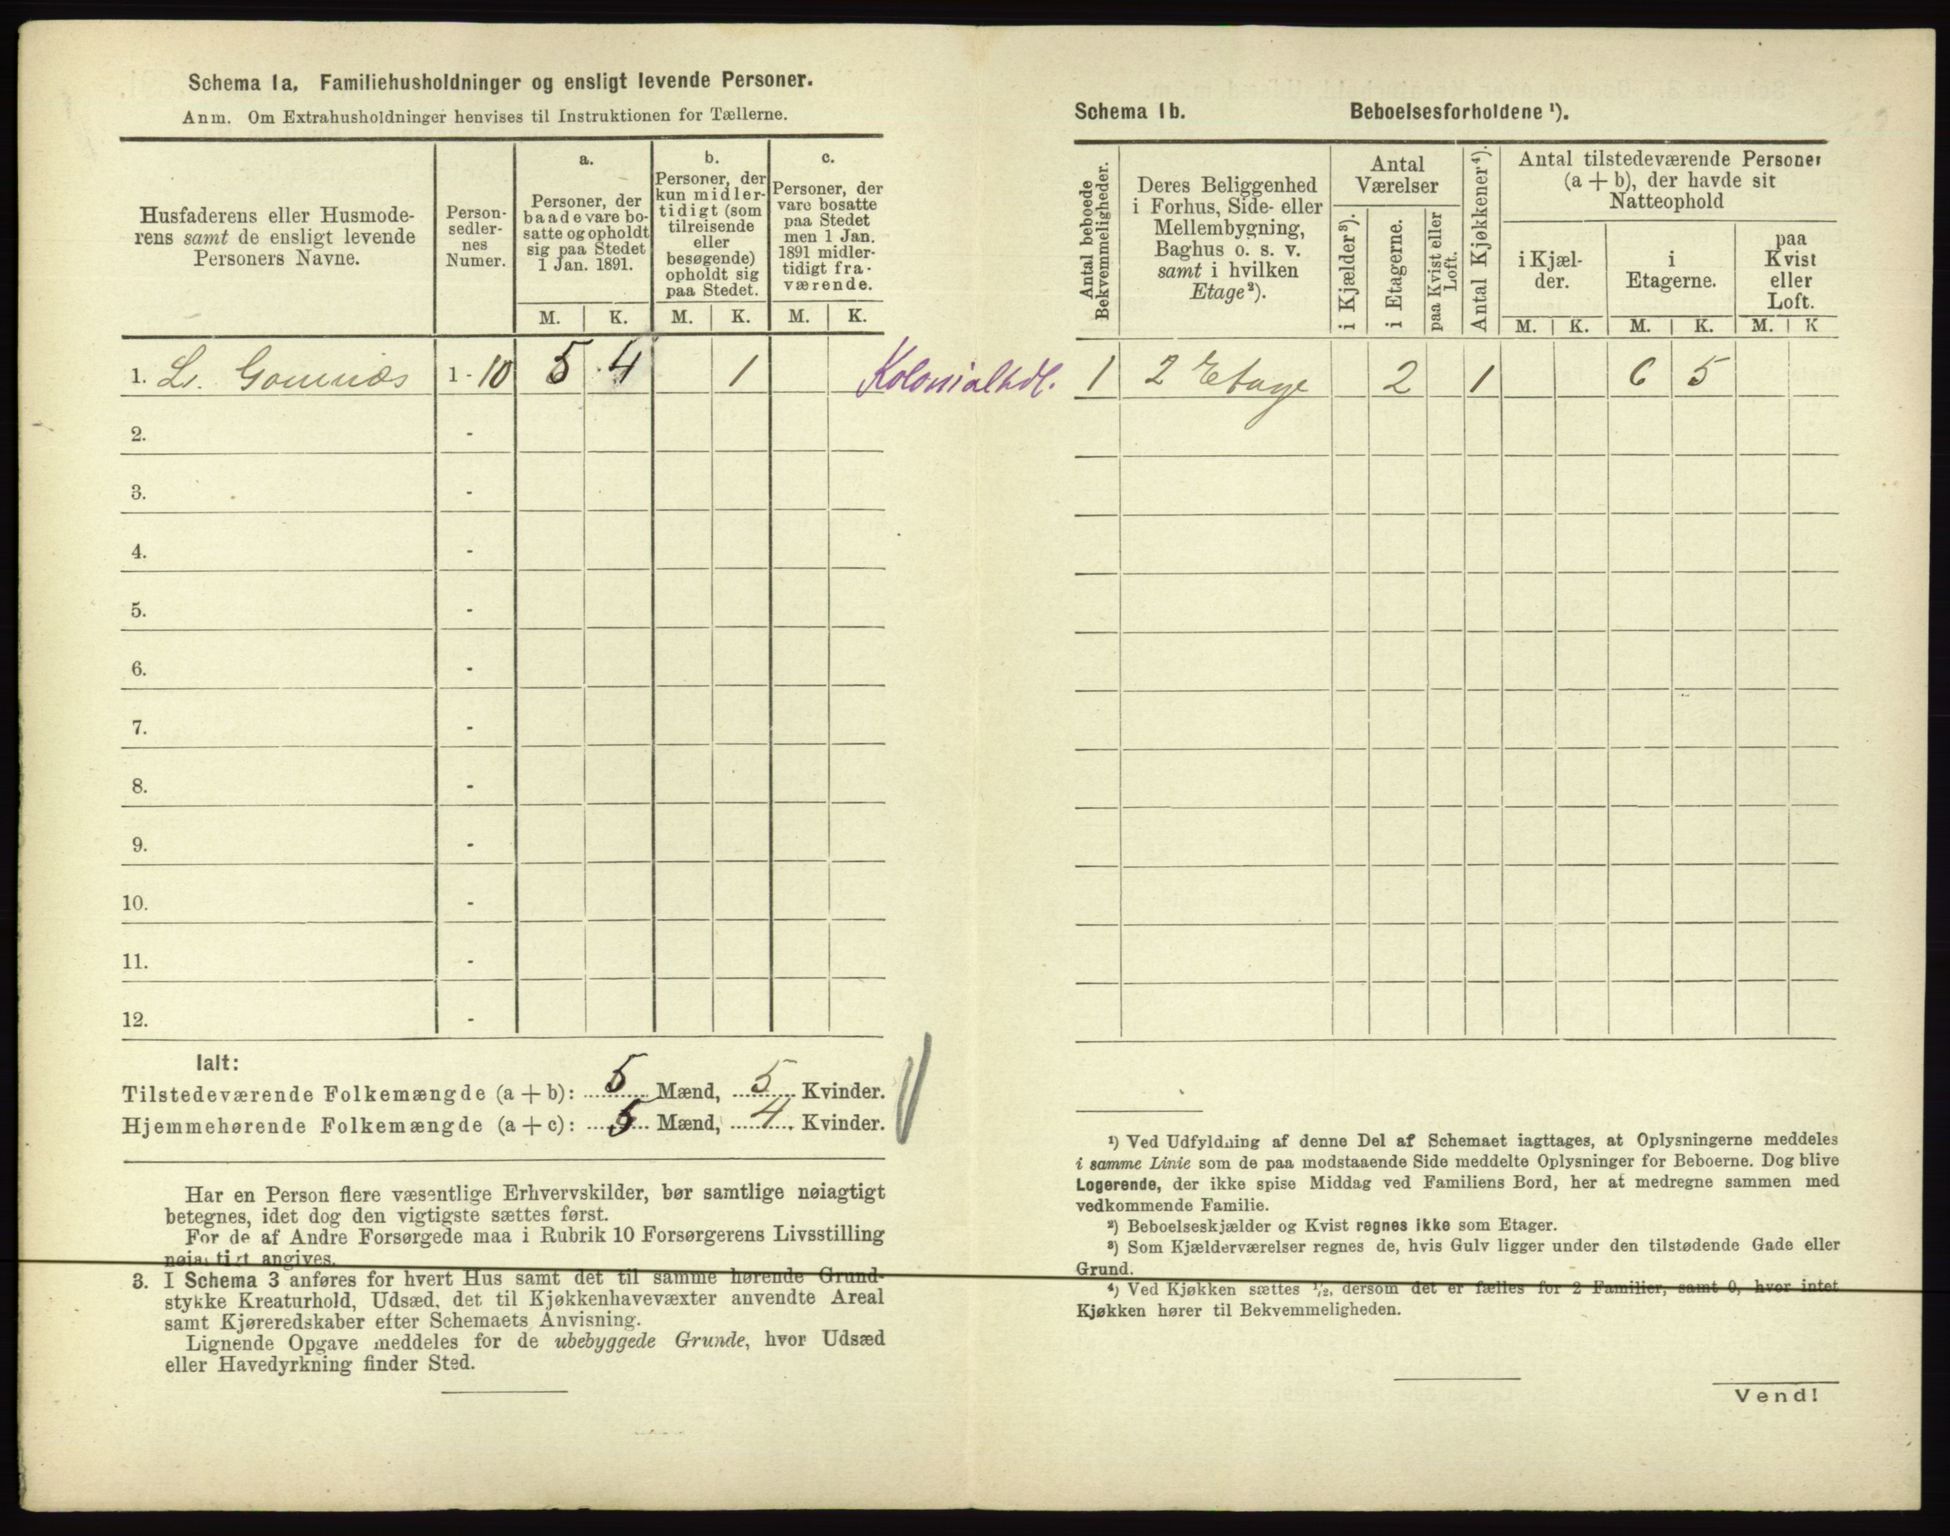 Schema 1a. Familiehusholdninger og ensligt levende Personer.
Anm. Om Extrahusholdninger henvises til Instruktionen for Tællerne.
Husfaderens eller Husmode-
rens samt de ensligt levende
Personers Navne.
Person-
sedler-
nes
Numer.
a.
Personer, der
baade vare bo-
satte og opholdt
sig paa Stedet
1 Jan. 1891.
b.
Personer, der
kun midler-
tidigt (som
tilreisende
eller
besøgende)
opholdt sig
paa Stedet.
c.
Personer, der
vare bosatte
paa Stedet
men 1 Jan.
1891 midler-
tidigt fra-
værende.
M. K. M. K. M. K.
1. 1 - 10 5 4 1 Kolonialhdl.
2. -
3. -
4. -
5. -
6. -
7. -
8. -
9. -
10. -
11. -
12. -
Ialt:
Tilstedeværende Folkemængde (a + b): 5 Mænd, 5 Kvinder.
Hjemmehørende Folkemængde (a + c): 5 Mænd, 4 Kvinder.
Har en Person flere væsentlige Erhvervskilder, bør samtlige nøiagtigt
betegnes, idet dog den vigtigste sættes først.
For de af Andre Forsørgede maa i Rubrik 10 Forsørgerens Livsstilling
nøiagtigt angives.
3. I Schema 3 anføres for hvert Hus samt det til samme hørende Grund-
stykke Kreaturhold, Udsæd, det til Kjøkkenhavevæxter anvendte Areal
samt Kjøreredskaber efter Schemaets Anvisning.
Lignende Opgave meddeles for de ubebyggede Grunde, hvor Udsæd
eller Havedyrkning finder Sted.
Schema 1b. Beboelsesforholdene ¹).
Antal beboede
Bekvemmeligheder.
Deres Beliggenhed
i Forhus, Side- eller
Mellembygning,
Baghus o. s. v.
samt i hvilken
Etage²).
Antal
Værelser
i Kjælder³).
i Etagerne.
paa Kvist eller
Loft.
Antal Kjøkkener⁴).
Antal tilstedeværende Personer
(a + b), der havde sit
Natteophold
i Kjæl-
der.
i
Etagerne.
paa
Kvist
eller
Loft.
M. K. M. K. M. K
1 2 Etage 2 1 6 5
¹) Ved Udfyldning af denne Del af Schemaet iagttages, at Oplysningerne meddeles
i samme Linie som de paa modstaaende Side meddelte Oplysninger for Beboerne. Dog blive
Logerende, der ikke spise Middag ved Familiens Bord, her at medregne sammen med
vedkommende Familie.
²) Beboelseskjælder og Kvist regnes ikke som Etager.
³) Som Kjælderværelser regnes de, hvis Gulv ligger under den tilstødende Gade eller
Grund.
⁴) Ved Kjøkken sættes ¹/₂, dersom det er fælles for 2 Familier, samt 0, hvor intet
Kjøkken hører til Bekvemmeligheden.
Vend!